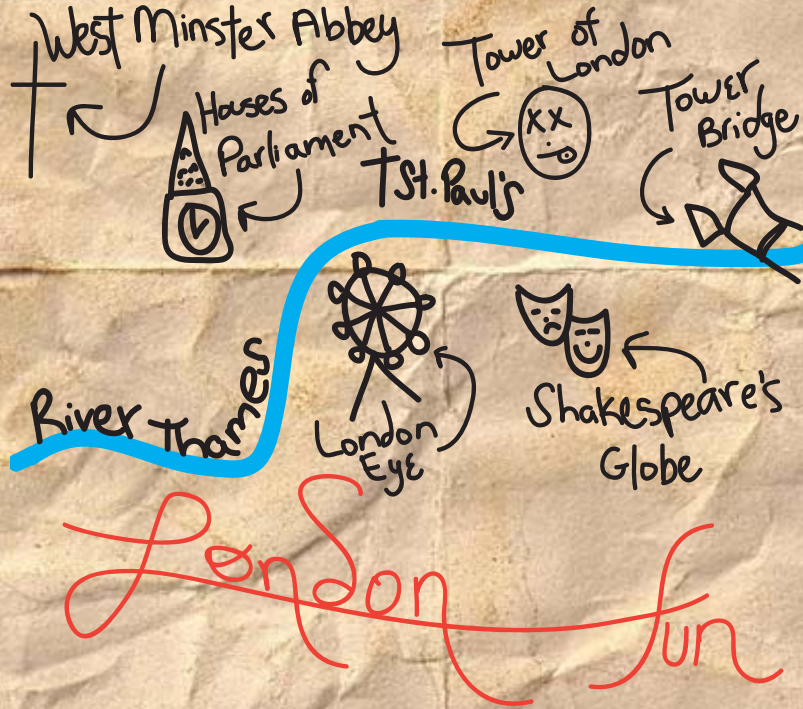 West Minster Abbey
Houses of
Parliament
St. Paul's
Tower of
London
Tower
Bridge
River Thames
London
Eye
Shakespeare's
Globe
London fun